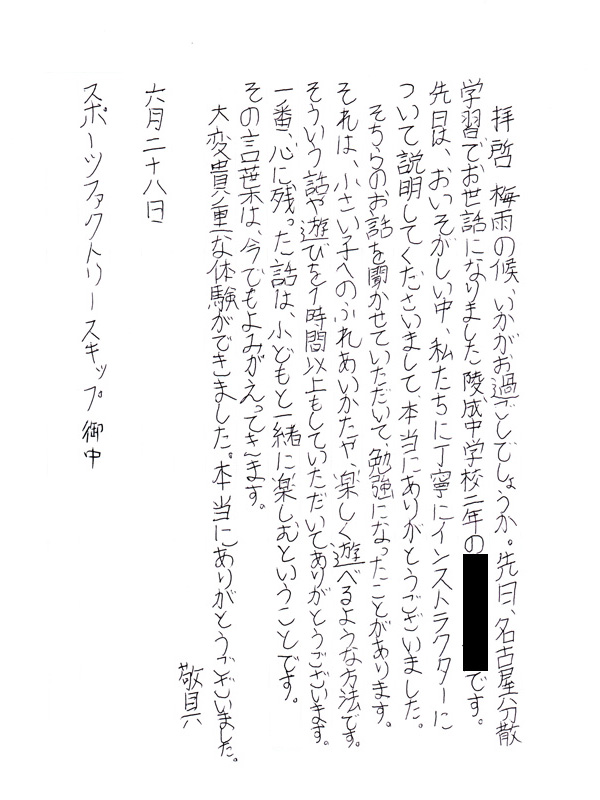 拝啓 梅雨の候、いかがお過ごしでしょうか。先日、名古屋分散
学習でお世話になりました陵成中学校二年の です。
先日は、おいそがしい中、私たちに丁寧にインストラクターに
ついて説明してくださいまして、本当にありがとうございました。
そちらのお話を聞かせていただいて、勉強になったことがあります。
それは、小さい子へのふれあいかたや、楽しく遊べるような方法です。
そういう話や遊びを1時間以上もしていただいてありがとうございます。
一番、心に残った話は、小どもと一緒に楽しむということです。
その言葉は、今でもよみがえってきます。
大変貴重な体験ができました。本当にありがとうございました。
敬具
六月二十八日
スポーツファクトリースキップ 御中